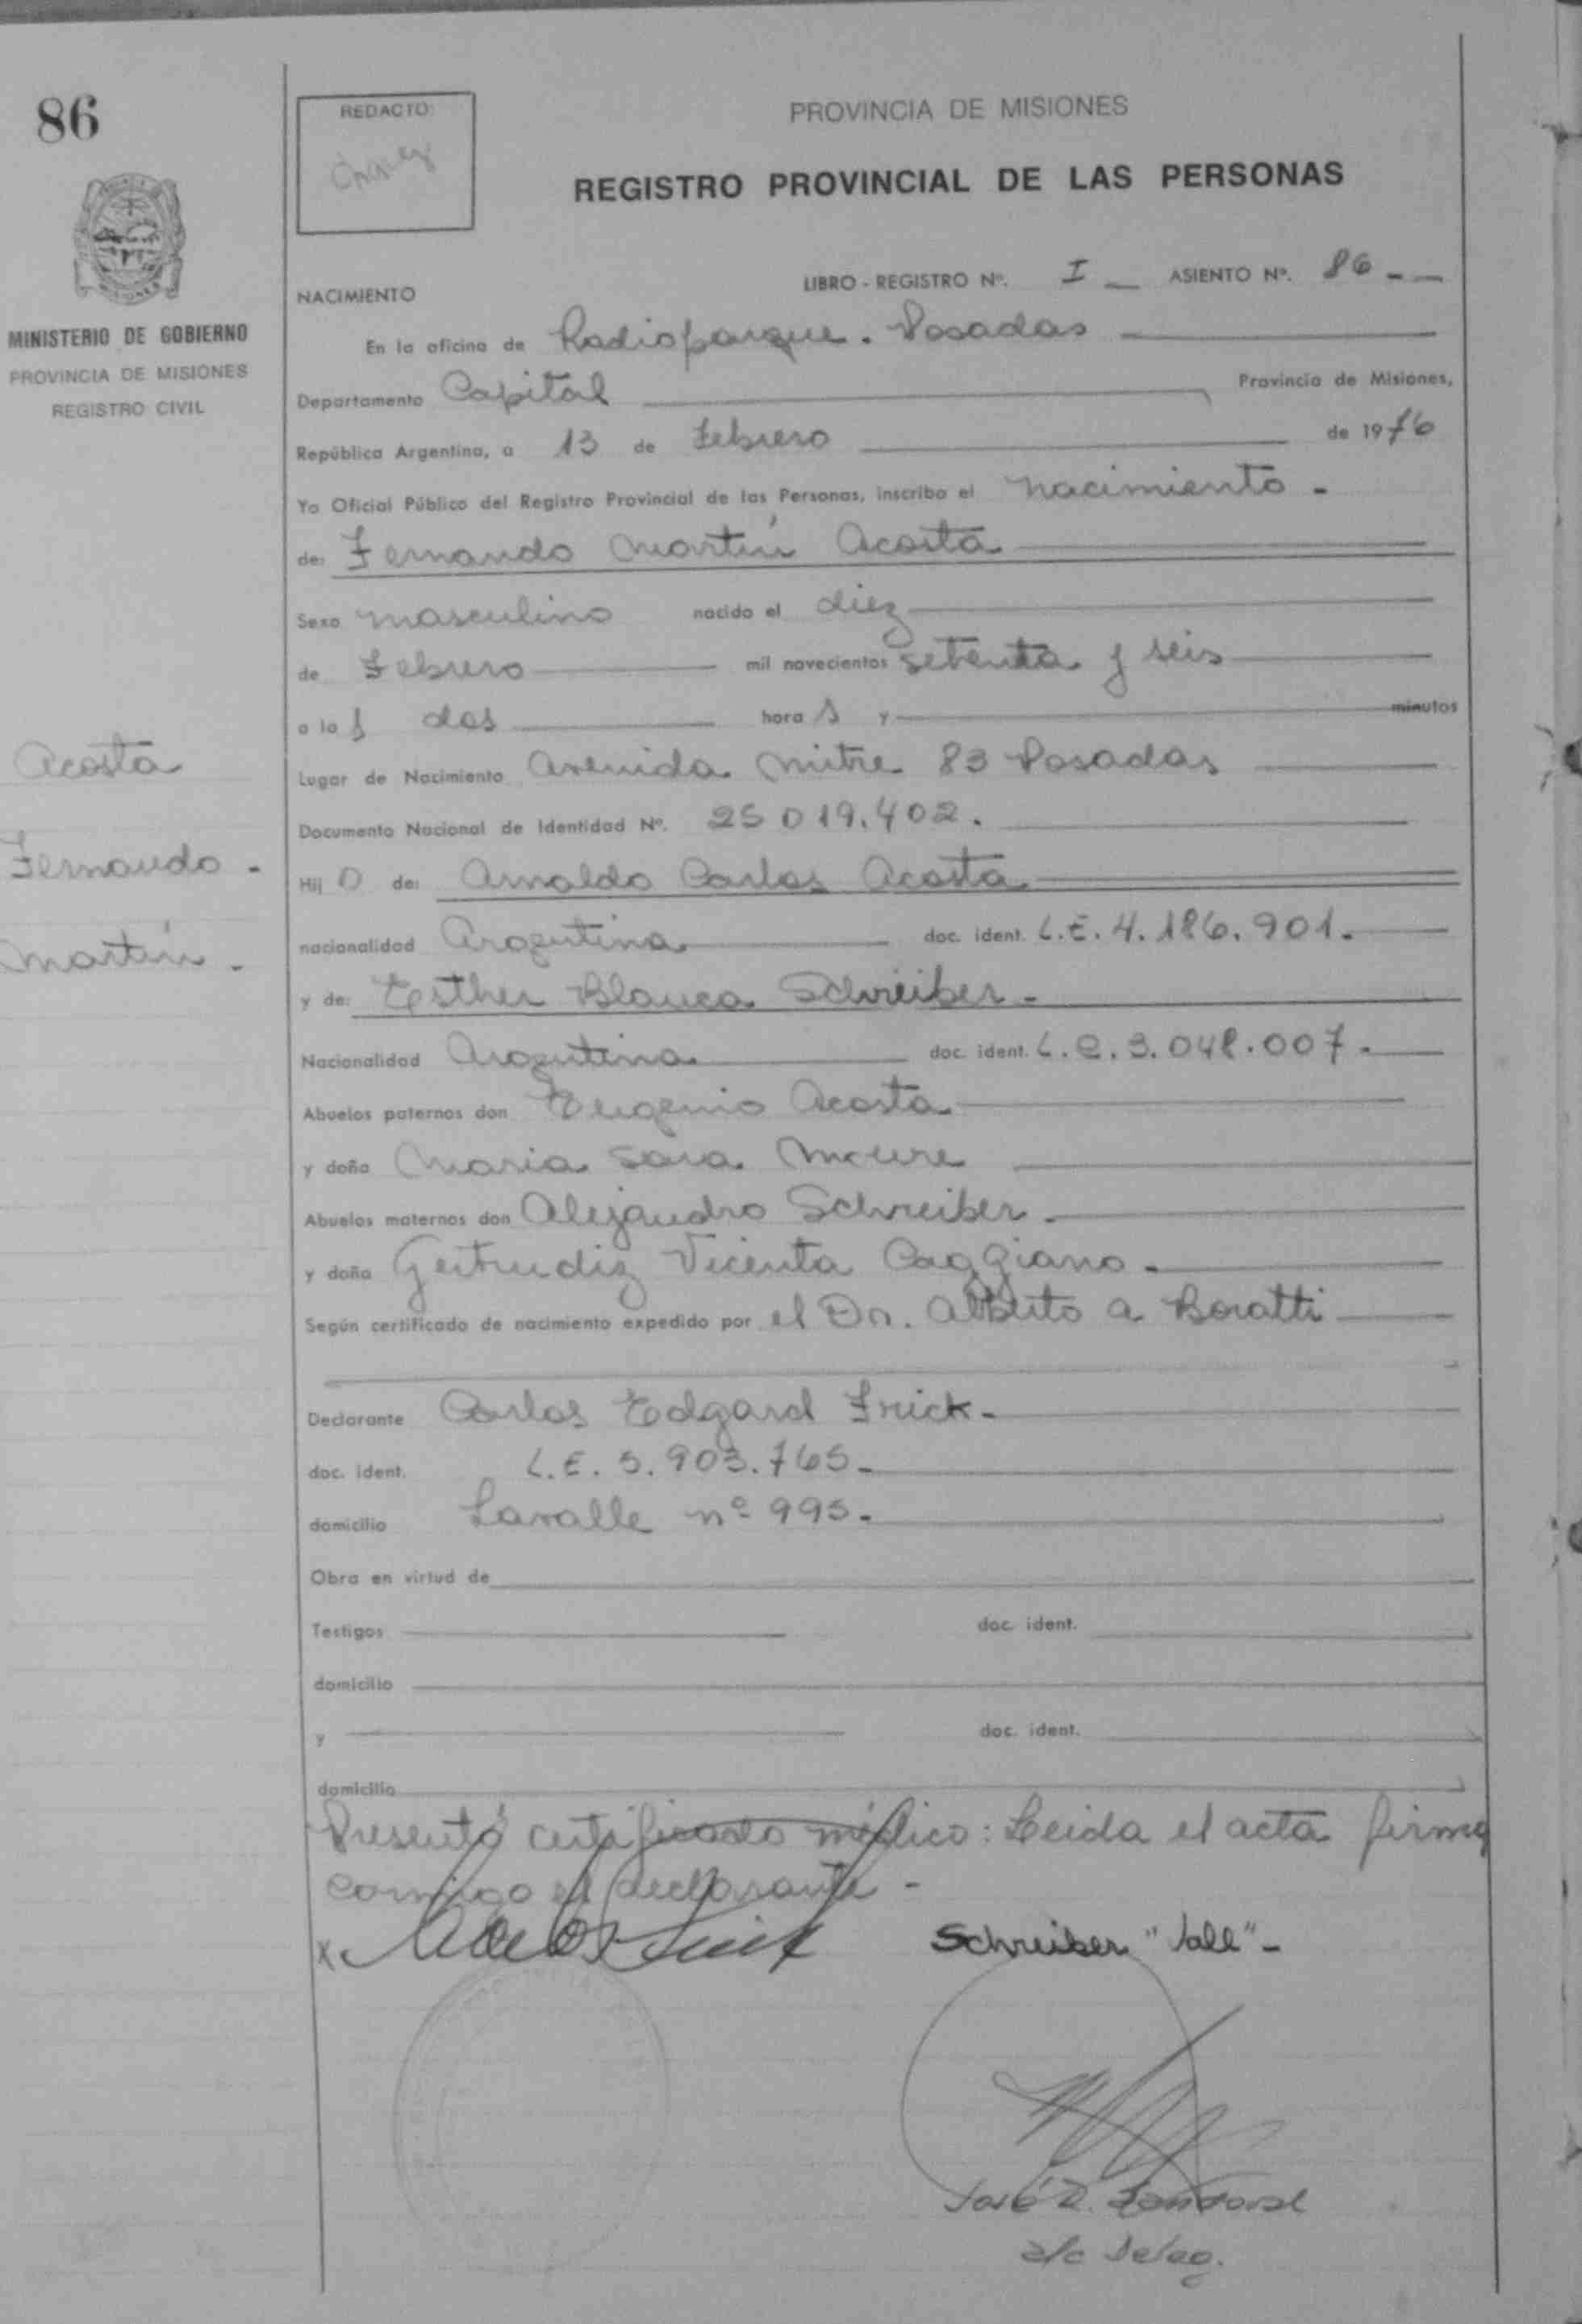 86
REDACTO:
PROVINCIA DE MISIONES
REGISTRO PROVINCIAL DE LAS PERSONAS
MINISTERIO DE GOBIERNO
PROVINCIA DE MISIONES
REGISTRO CIVIL
NACIMIENTO
LIBRO - REGISTRO Nº. I ASIENTO Nº. 86 -
En la oficina de Radioparque. Posadas
Departamento Capital Provincia de Misiones,
República Argentina, a 13 de Febrero de 1976
Yo Oficial Público del Registro Provincial de las Personas, inscribo el nacimiento -
de: Fernando Martín Acosta
Sexo masculino nacido el diez
de Febrero mil novecientos setenta y seis
a las dos hora s y minutos
Acosta
Fernando -
Martín -
Lugar de Nacimiento Avenida Mitre 83 Posadas
Documento Nacional de Identidad Nº. 25 019.402.
Hij o de: Arnoldo Carlos Acosta
nacionalidad Argentina doc. ident. L.E. 4.186.901.
y de: Esther Blanca Schreiber -
Nacionalidad Argentina doc. ident. L.C. 3.048.007.
Abuelos paternos don Eugenio Acosta
y doña Maria Sara Moure
Abuelos maternos don Alejandro Schreiber -
y doña Gertrudiz Vicenta Caggiano -
Según certificado de nacimiento expedido por el Dr. Alberto A Boratti
Declarante Carlos Edgard Frick -
doc. ident. L.E. 5.903.765 -
domicilio Lavalle nº 995 -
Obra en virtud de
Testigos doc. ident.
domicilio
y doc. ident.
domicilio
Presentó certificado médico: Leida el acta firma
conmigo el declarante -
X
Schreiber "Vale" -
José R. Sandoval
a/c Deleg.